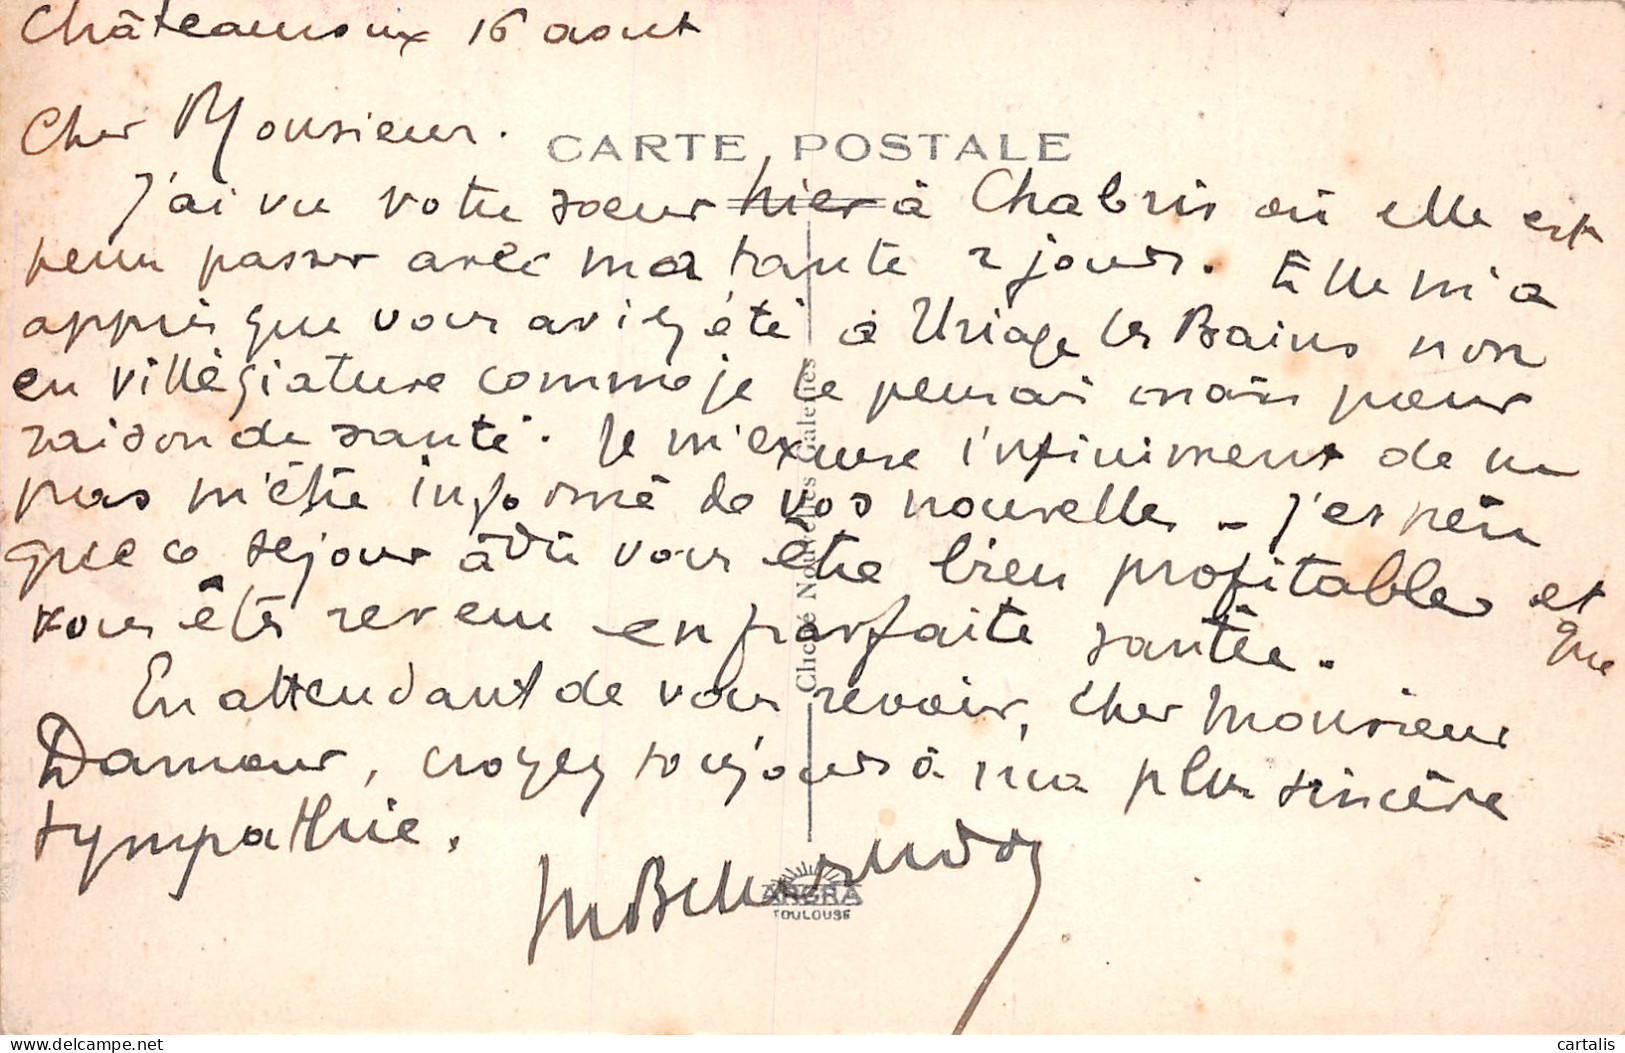 Châteauroux 16 aout
Cher Monsieur.
CARTE POSTALE
J'ai vu votre soeur hier à Chabris où elle est
venu passer avec ma tante 2 jours. Elle m'a
appris que vous aviez été à Uriage les Bains non
en villégiature comme je le pensais mais pour
raison de santé. Je m'excuse infiniment de ne
pas m'être informé de vos nouvelles - J'espère
que ce séjour à dû vous être bien profitable et
que
vous êtes revenu en parfaite santée.
En attendant de vous revoir, cher Monsieur
Damour, croyez toujours à ma plus sincère
sympathie.
Cliché Nouvelles Galeries
ANGRA
TOULOUSE
delcampe.net
cartalis